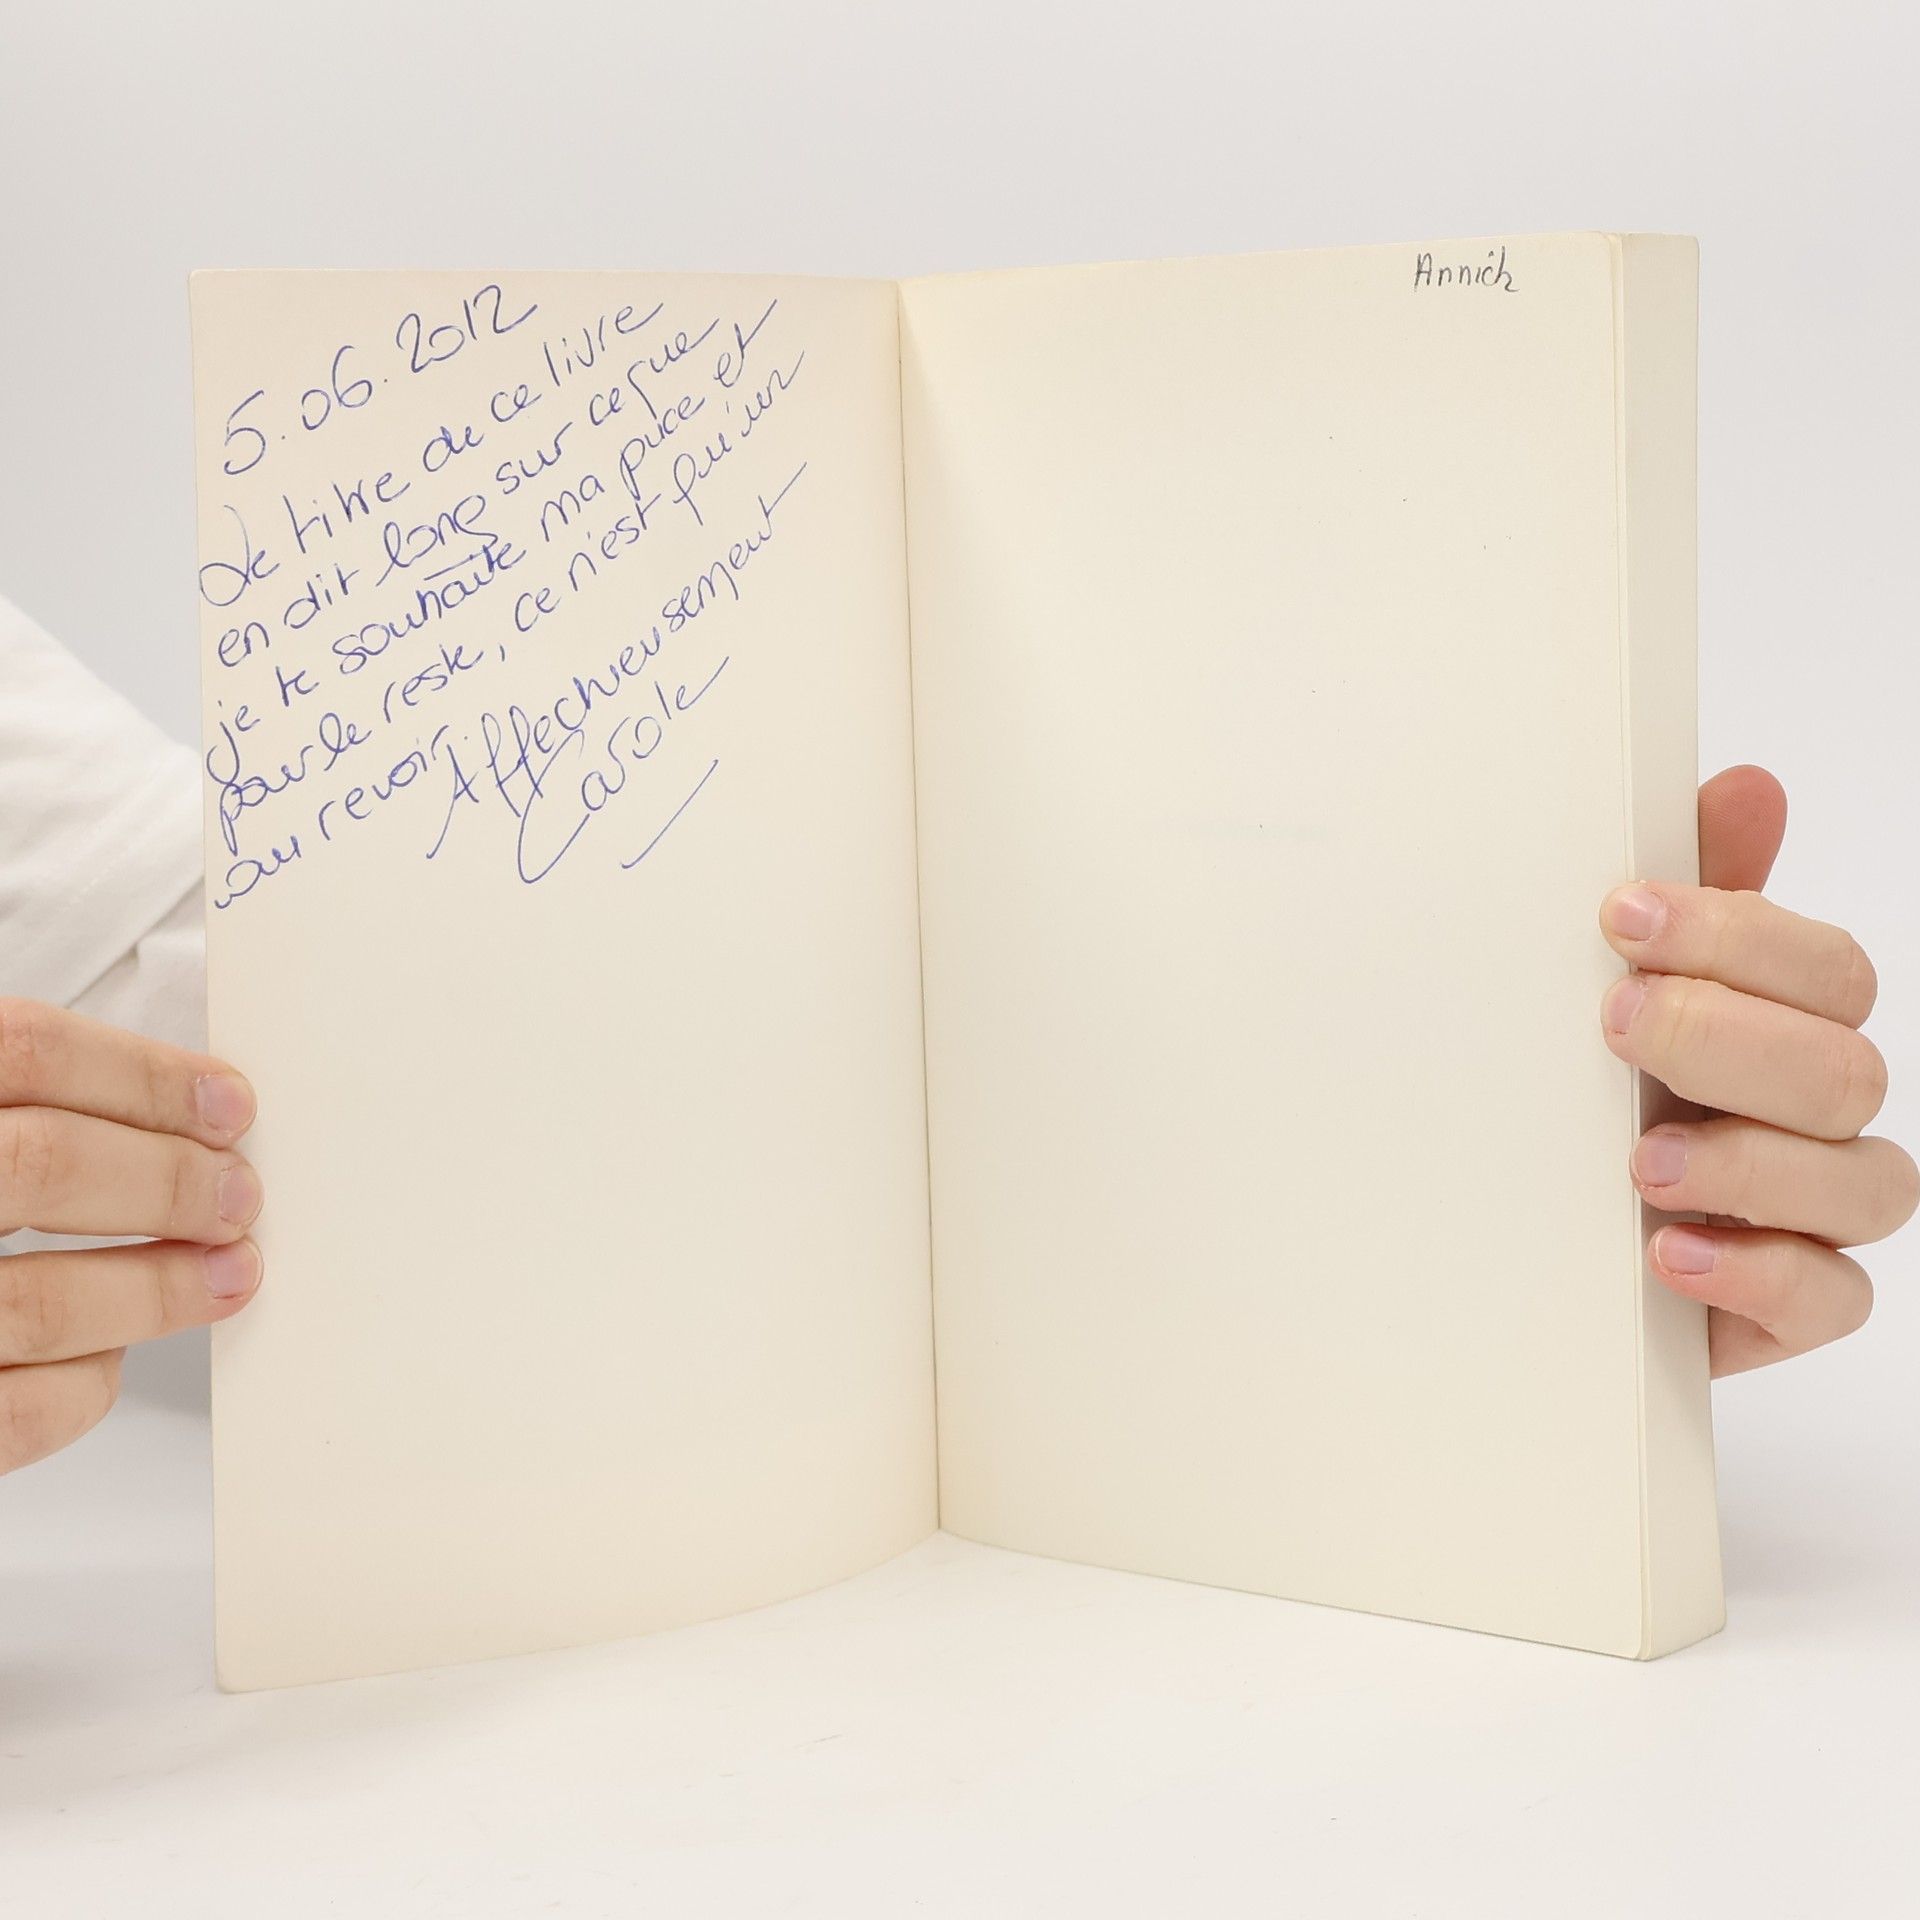 5.06.2012
Le titre de ce livre
en dit long sur ce que
je te souhaite ma puce et
pour le reste, ce n'est qu'un
au revoir.
Affectueusement
Carole
Annick